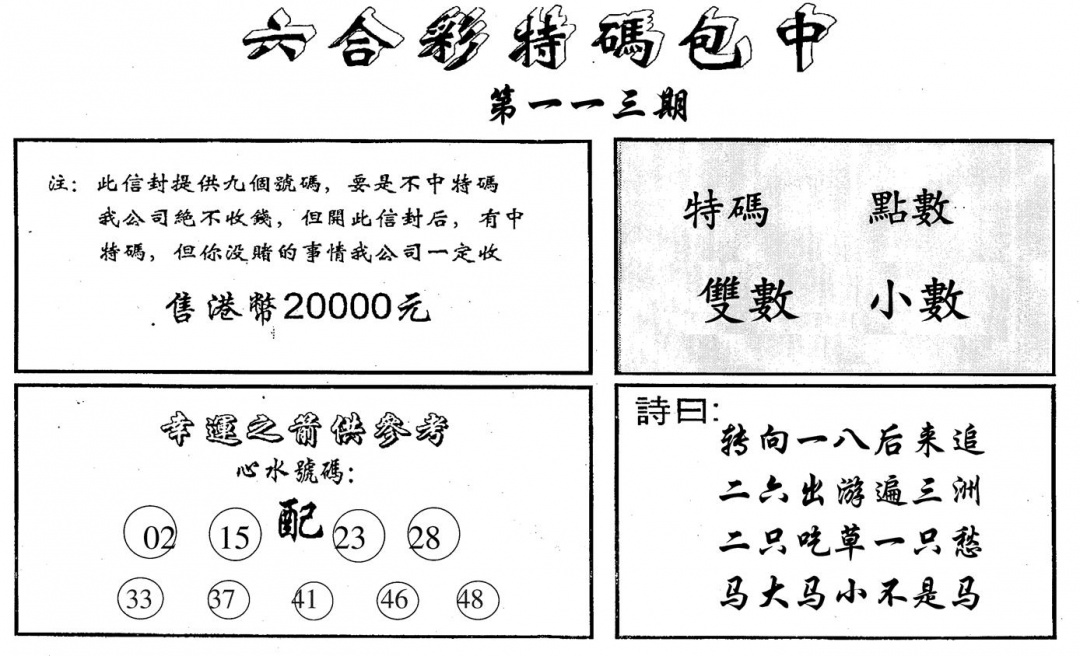 六合彩特碼包中
第一一三期
注：此信封提供九個號碼，要是不中特碼
我公司絕不收錢，但開此信封后，有中
特碼，但你没賭的事情我公司一定收
售港幣20000元
特碼 點數
雙數 小數
幸運之箭供參考
心水號碼：
02 15 配 23 28
33 37 41 46 48
詩曰：
转向一八后来追
二六出游遍三洲
二只吃草一只愁
马大马小不是马